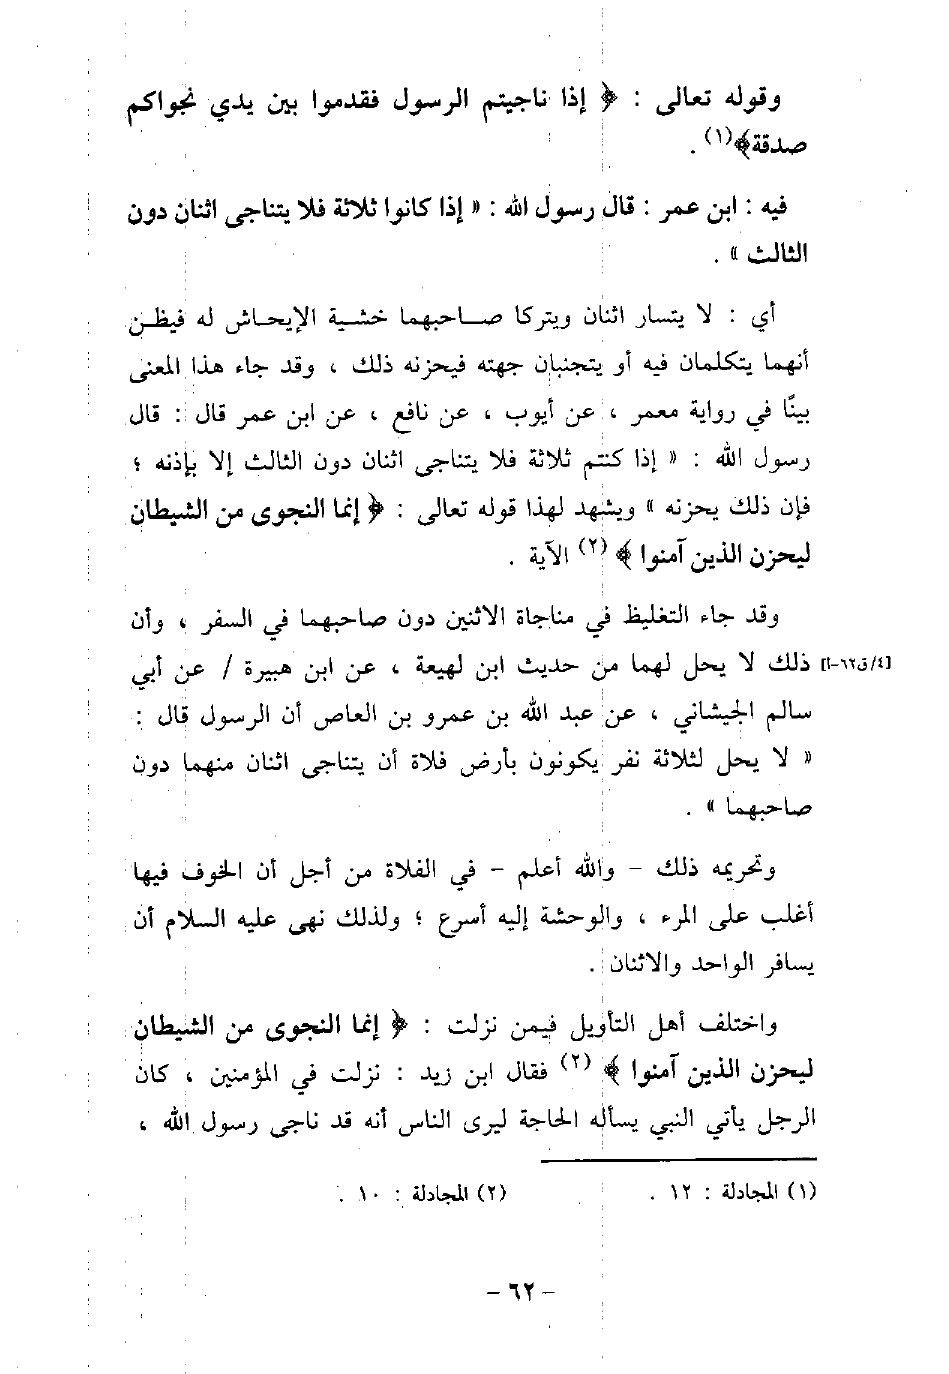 وقوله تعالى : ﴿ إذا ناجيتم الرسول فقدموا بين يدي نجواكم
صدقة﴾(١) .
فيه : ابن عمر : قال رسول الله : « إذا كانوا ثلاثة فلا يتناجى اثنان دون
الثالث » .
أي : لا يتسار اثنان ويتركا صاحبهما خشية الإيحاش له فيظن
أنهما يتكلمان فيه أو يتجنبان جهته فيحزنه ذلك ، وقد جاء هذا المعنى
بينًا في رواية معمر ، عن أيوب ، عن نافع ، عن ابن عمر قال : قال
رسول الله : « إذا كنتم ثلاثة فلا يتناجى اثنان دون الثالث إلا بإذنه ؛
فإن ذلك يحزنه » ويشهد لهذا قوله تعالى : ﴿ إنما النجوى من الشيطان
ليحزن الذين آمنوا ﴾ (٢) الآية .
وقد جاء التغليظ في مناجاة الاثنين دون صاحبهما في السفر ، وأن
[٤/ق٦٢-أ] ذلك لا يحل لهما من حديث ابن لهيعة ، عن ابن هبيرة / عن أبي
سالم الجيشاني ، عن عبد الله بن عمرو بن العاص أن الرسول قال :
« لا يحل لثلاثة نفر يكونون بأرض فلاة أن يتناجى اثنان منهما دون
صاحبهما » .
وتحريمه ذلك – والله أعلم – في الفلاة من أجل أن الخوف فيها
أغلب على المرء ، والوحشة إليه أسرع ؛ ولذلك نهى عليه السلام أن
يسافر الواحد والاثنان .
واختلف أهل التأويل فيمن نزلت : ﴿ إنما النجوى من الشيطان
ليحزن الذين آمنوا ﴾ (٢) فقال ابن زيد : نزلت في المؤمنين ، كان
الرجل يأتي النبي يسأله الحاجة ليرى الناس أنه قد ناجى رسول الله ،
(١) المجادلة : ١٢ . (٢) المجادلة : ١٠ .
– ٦٢ –